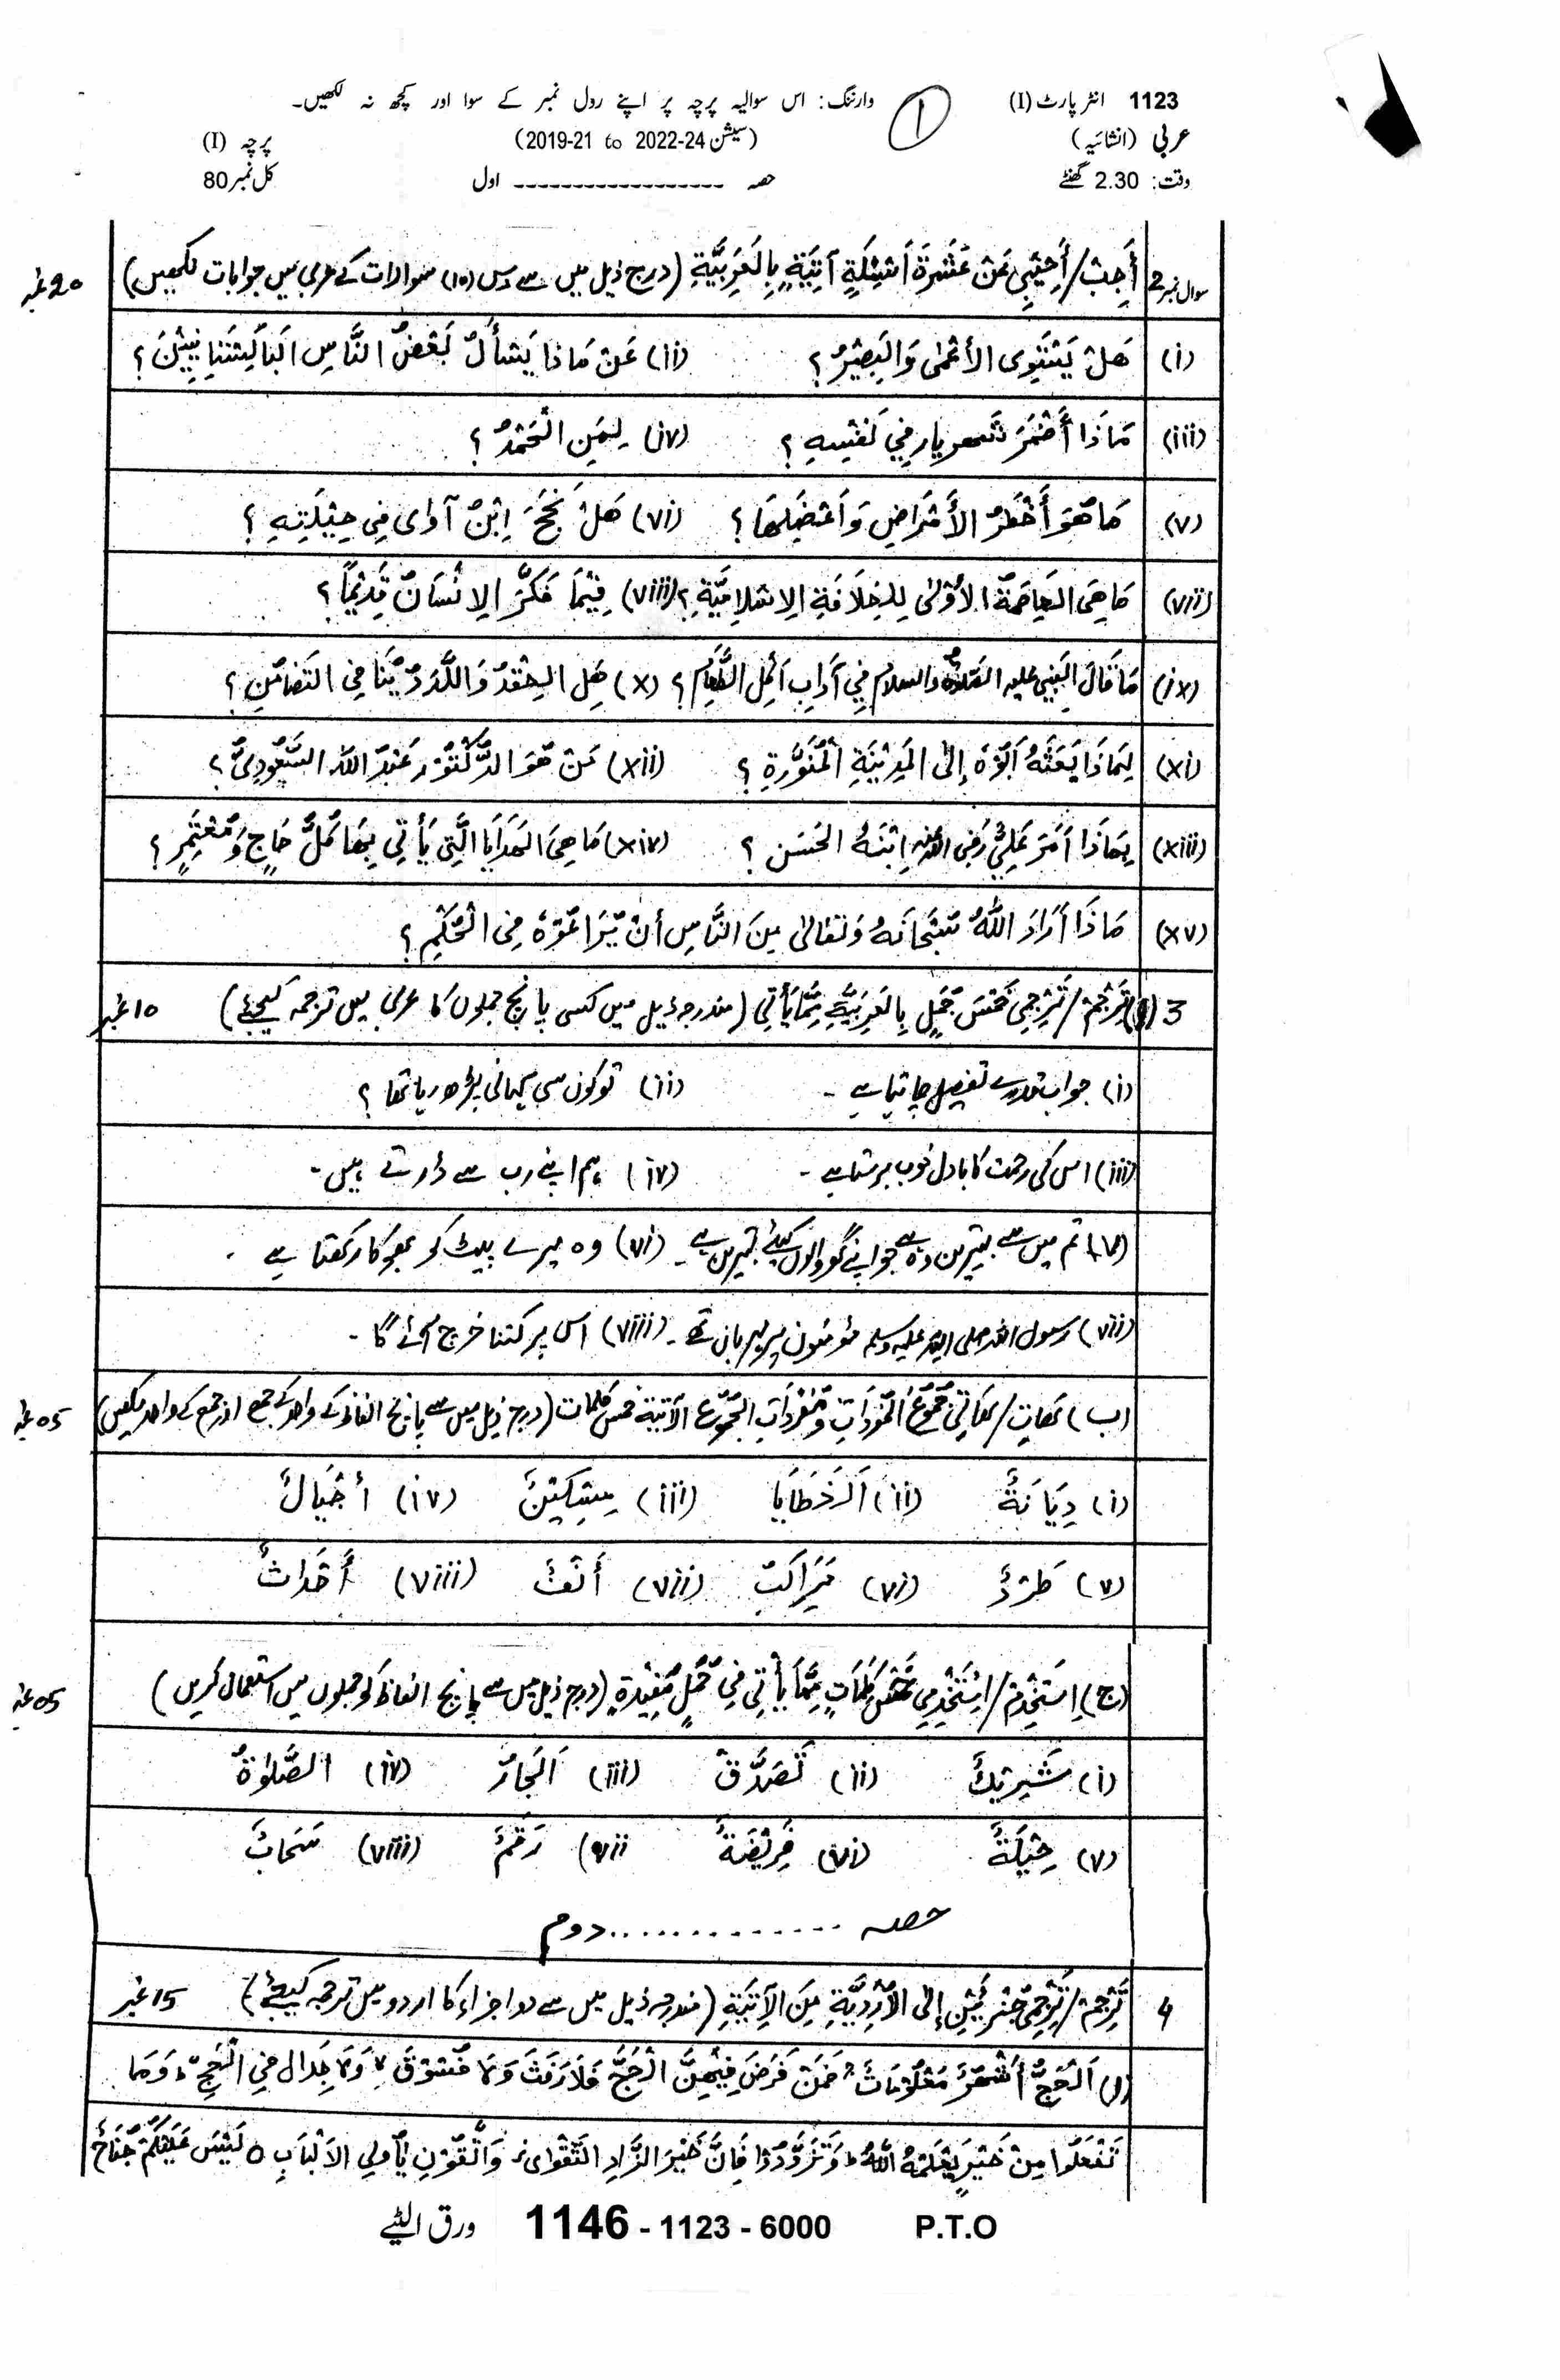 1123 انٹر پارٹ (I) وارننگ: اس سوالیہ پرچہ پر اپنے رول نمبر کے سوا اور کچھ نہ لکھیں۔
عربی (انشائیہ) (سیشن 2019-21 to 2022-24) پرچہ (I)
وقت: 2.30 گھنٹے حصہ ------------------ اول کل نمبر 80
سوال نمبر 2 أَجِبْ/أَجِيْبِي عَنْ عَشَرَةِ أَسْئِلَةٍ آتِيَةٍ بِالعَرَبِيَّةِ (درج ذیل میں سے دس (10) سوالات کے عربی میں جوابات لکھیں) 20 نمبر
(i) هَلْ يَسْتَوِى الأَعْمٰى وَالبَصِيْرُ؟ (ii) عَنْ مَاذَا يَسْأَلُ بَعْضُ النَّاسِ البَاكِسْتَانِيِّيْنَ؟
(iii) مَاذَا أَضْمَرَ شَهريار فِي نَفْسِهِ؟ (iv) لِمَنِ الْحَمْدُ؟
(v) مَا هُوَ أَخْطَرُ الأَمْرَاضِ وَأَعْضَلُهَا؟ (vi) هَلْ نَجَحَ ابْنُ آوٰى فِي حِيْلَتِهِ؟
(vii) مَا هِيَ العَاصِمَةُ الأُوْلٰى لِلخِلَافَةِ الإِسْلَامِيَّةِ؟ (viii) فِيْمَا فَكَّرَ الإِنْسَانُ قَدِيْمًا؟
(ix) مَا قَالَ النَّبِيُّ عليه الصلوٰة والسلام فِي آدَابِ أَكْلِ الطَّعَامِ؟ (x) هَلِ الحِقْدُ وَاللَّدَدُ مِنَّا فِي التَضَامُنِ؟
(xi) لِمَاذَا بَعَثَهُ أَبُوْهُ إِلَى المَدِيْنَةِ الْمُنَوَّرَةِ؟ (xii) مَنْ هُوَ الدُّكْتُوْر عَبْدُ اللّٰهِ السَّعُوْدِيُّ؟
(xiii) بِمَاذَا أَمَرَ عَلِيٌّ رَضِيَ اللّٰه عنه ابْنَهُ الحَسَنَ؟ (xiv) مَا هِيَ الهَدَايَا الَّتِي يَأْتِي بِهَا كُلُّ حَاجٍّ وَمُعْتَمِرٍ؟
(xv) مَاذَا أَرَادَ اللّٰهُ سُبْحَانَهُ وَتَعَالٰى مِنَ النَّاسِ أَنْ يُّرَاعُوْهُ فِي الْحُكْمِ؟
3 (ا) تَرْجِمْ/تَرْجِمِي خَمْسَ جُمَلٍ بِالعَرَبِيَّةِ مِمَّا يَأْتِي (مندرجہ ذیل میں کسی پانچ جملوں کا عربی میں ترجمہ کیجئے) 10 نمبر
(i) جواب تدرے تفصیل چاہتا ہے۔ (ii) تو کون سی کہانی پڑھ رہا تھا؟
(iii) اس کی رحمت کا بادل خوب برستا ہے۔ (iv) ہم اپنے رب سے ڈرتے ہیں۔
(v) تم میں سے بہترین وہ ہے جو اپنے گھر والوں کیلئے بہترین ہے۔ (vi) وہ میرے پیٹ کو بھوکا رکھتا ہے۔
(vii) رسول اللہ صلی اللہ علیہ وسلم مؤمنون پر مہربان تھے۔ (viii) اس پر کتنا خرچ آئے گا۔
(ب) هَاتِ/هَاتِي جُمُوْعَ المُفْرَدَاتِ وَمُفْرَدَاتِ الجُمُوْعِ الآتِيَةِ خمس كلمات (درج ذیل میں سے پانچ الفاظ کے واحد کے جمع اور جمع کے واحد لکھیں) 05 نمبر
(i) دِيَانَةٌ (ii) اَلْخَطَايَا (iii) مِسْكِيْنٌ (iv) أَجْيَالٌ
(v) طَرْدٌ (vi) مَرَاكِبُ (vii) أَنْفٌ (viii) أَحْدَاثٌ
(ج) اِسْتَخْدِمْ/اِسْتَخْدِمِي خَمْسَ كَلِمَاتٍ مِمَّا يَأْتِي فِي جُمَلٍ مُفِيْدَةٍ (درج ذیل میں سے پانچ الفاظ کو جملوں میں استعمال کریں) 05 نمبر
(i) شَرِيْكٌ (ii) تَصَدَّقَ (iii) اَلْجَارُ (iv) الصَّلٰوةُ
(v) حِيْلَةٌ (vi) فَرِيْضَةٌ (vii) رَقْمٌ (viii) سَحَابٌ
حصہ ............. دوم
4 تَرْجِمْ/تَرْجِمِي جُزْئَيْنِ إِلَى الأُرْدِيَّةِ مِنَ الآتِيَةِ (مندرجہ ذیل میں سے دو اجزاء کا اردو میں ترجمہ کیجئے) 15 نمبر
(ا) اَلْحَجُّ أَشْهُرٌ مَّعْلُوْمَاتٌ فَمَنْ فَرَضَ فِيْهِنَّ الْحَجَّ فَلَا رَفَثَ وَلَا فُسُوْقَ وَلَا جِدَالَ فِي الْحَجِّ وَمَا
تَفْعَلُوا مِنْ خَيْرٍ يَعْلَمْهُ اللّٰهُ وَتَزَوَّدُوْا فَإِنَّ خَيْرَ الزَّادِ التَّقْوٰى وَاتَّقُوْنِ يٰأُولِي الأَلْبَابِ ○ لَيْسَ عَلَيْكُمْ جُنَاحٌ
ورق الٹیے 1146 - 1123 - 6000 P.T.O